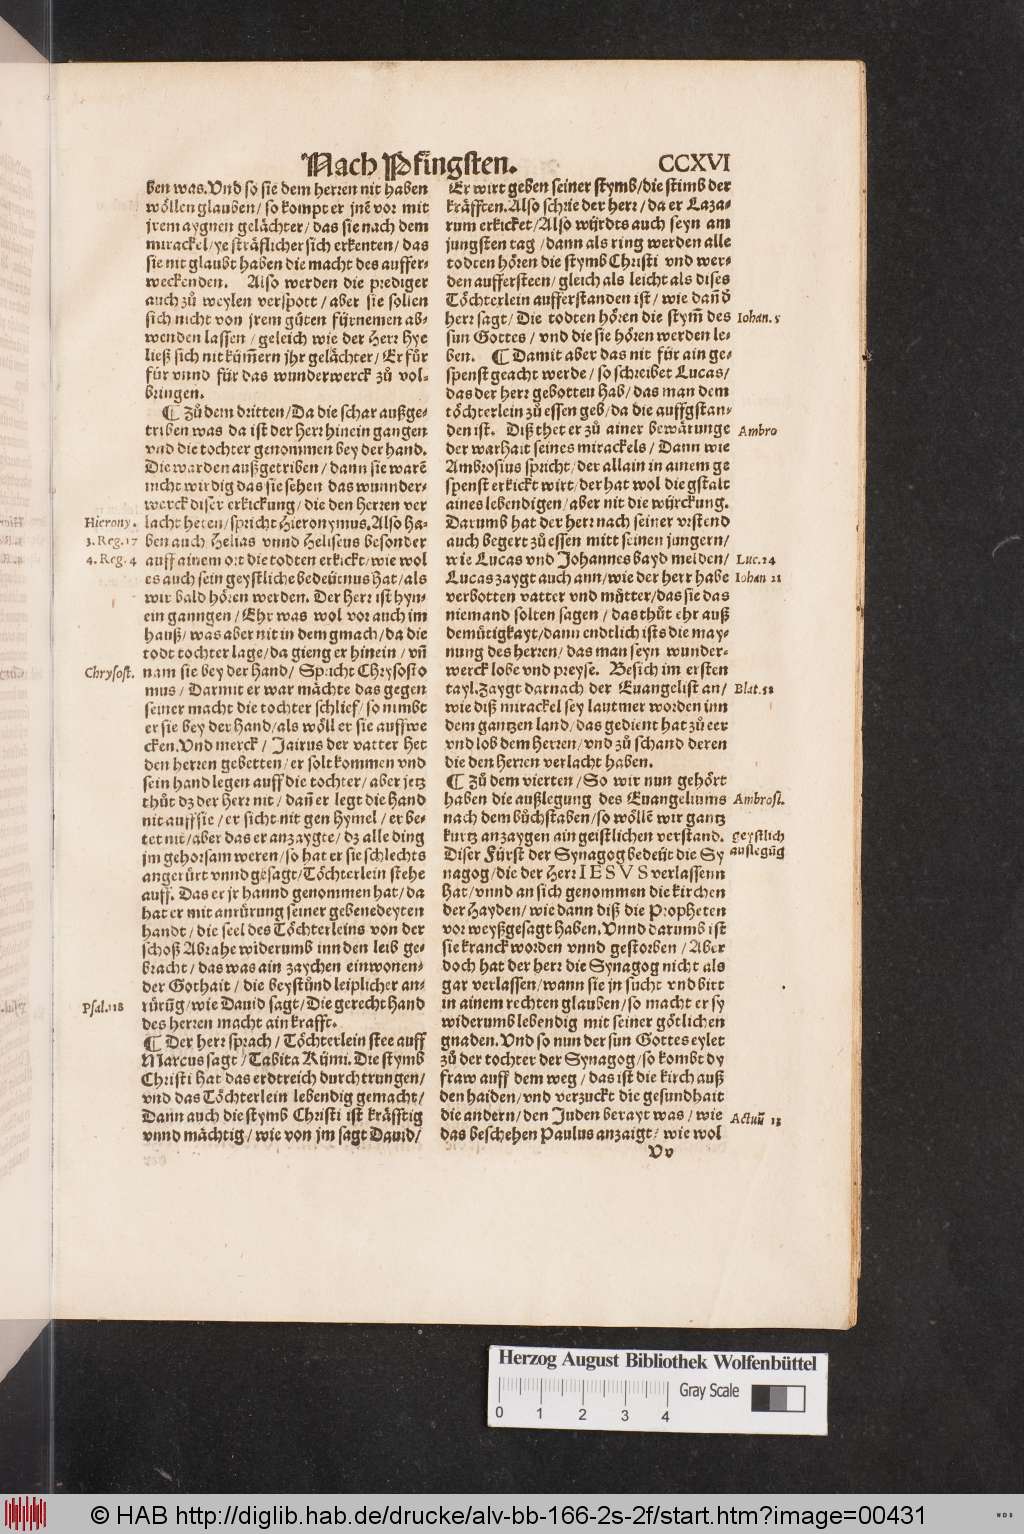 Nach Pfingsten. CCXVI
ben was. Vnd so sie dem herren nit haben
wöllen glauben / so kompt er jnē vor mit
jrem aygnen gelächter / das sie nach dem
mirackel / ye sträflicher sich erkenten / das
sie nit glaubt haben die macht des auffer-
weckenden. Also werden die prediger
auch zů weylen verspott / aber sie sollen
sich nicht von jrem gůten fürnemen ab-
wenden lassen / geleich wie der Herr hye
ließ sich nit küm̄ern jhr gelächter / Er fůr
für vnnd für das wunderwerck zů vol-
bringen.
¶ Zů dem dritten / Da die schar außge-
triben was da ist der Herr hinein gangen
vnd die tochter genommen bey der hand.
Die warden außgetriben / dann sie warē
nicht wirdig das sie sehen das wunnder-
werck diser erkickung / die den Herren ver
Hierony. lacht heten / spricht Hieronymus. Also ha-
3. Reg. 17 ben auch Helias vnnd Heliseus besonder
4. Reg. 4 auff ainem ort die todten erkickt / wie wol
es auch sein geystliche bedeütnus hat / als
wir bald hören werden. Der Herr ist hyn-
ein ganngen / Ehr was wol vor auch im
hauß / was aber nit in dem gmach / da die
todt tochter lage / da gieng er hinein / vñ
Chrysost. nam sie bey der hand / Spricht Chrysosto
mus / Darmit er war mächte das gegen
seiner macht die tochter schlief / so nimbt
er sie bey der hand / als wöll er sie auffwe
cken. Vnd merck / Jairus der vatter het
den herren gebetten / er solt kommen vnd
sein hand legen auff die tochter / aber jetz
thůt dz der Herr nit / dañ er legt die hand
nit auff sie / er sicht nit gen hymel / er be-
tet nit / aber das er anzaygte / dz alle ding
jm gehorsam weren / so hat er sie schlechts
angerürt vnnd gesagt / Töchterlein stehe
auff. Das er jr hannd genommen hat / da
hat er mit anrürung seiner gebenedeyten
handt / die seel des Töchterleins von der
schoß Abrahe widerumb inn den leib ge-
bracht / das was ain zaychen einwonen-
der Gothait / die beystůnd leiplicher an-
Psal. 118 rürūg / wie Dauid sagt / Die gerecht hand
des herren macht ain krafft.
¶ Der herr sprach / Töchterlein stee auff
Marcus sagt / Tabita Kümi. Die stymb
Christi hat das erdtreich durchtrungen /
vnd das Töchterlein lebendig gemacht /
Dann auch die stymb Christi ist kräfftig
vnnd mächtig / wie von jm sagt Dauid /
Er wirt geben seiner stymb / die stimb der
kräfften. Also schrie der herr / da er Laza-
rum erkicket / Also wirdts auch seyn am
jungsten tag / dann als ring werden alle
todten hören die stymb Christi vnd wer-
den auffersteen / gleich als leicht als dises
Töchterlein aufferstanden ist / wie dañ d̄
herr sagt / Die todten hören die stym̄ des Iohan. 5
sun Gottes / vnd die sie hören werden le-
ben. ¶ Damit aber das nit für ain ge-
spenst geacht werde / so schreibet Lucas /
das der herr gebotten hab / das man dem
töchterlein zů essen geb / da die auffgstan-
den ist. Diß thet er zů ainer bewärunge Ambro
der warhait seines mirackels / Dann wie
Ambrosius spricht / der allain in ainem ge
spenst erkickt wirt / der hat wol die gstalt
aines lebendigen / aber nit die würckung.
Darumb hat der herr nach seiner vrstend
auch begert zů essen mitt seinen jungern /
wie Lucas vnd Johannes bayd melden / Luc. 24
Lucas zaygt auch ann / wie der herr habe Iohan 21
verbotten vatter vnd můtter / das sie das
niemand solten sagen / das thůt ehr auß
demütigkayt / dann endtlich ists die may-
nung des herren / das man seyn wunder-
werck lobe vnd preyse. Besich im ersten
tayl. Zaygt darnach der Euangelist an / Blat. 58
wie diß mirackel sey lautmer worden inn
dem gantzen land / das gedient hat zů eer
vnd lob dem Herren / vnd zů schand deren
die den Herren verlacht haben.
¶ Zů dem vierten / So wir nun gehört
haben die außlegung des Euangeliums Ambrosi.
nach dem bůchstaben / so wöllē wir gantz
kurtz anzaygen ain geistlichen verstand. geystlich
Diser Fürst der Synagog bedeüt die Sy auslegūg
nagog / die der Herr IESVS verlassenn
hat / vnnd an sich genommen die kirchen
der Hayden / wie dann diß die Propheten
vor weyßgesagt haben. Vnnd darumb ist
sie kranck worden vnnd gestorben / Aber
doch hat der herr die Synagog nicht als
gar verlassen / wann sie jn sucht vnd bitt
in ainem rechten glauben / so macht er sy
widerumb lebendig mit seiner götlichen
gnaden. Vnd so nun der sun Gottes eylet
zů der tochter der Synagog / so kombt dy
fraw auff dem weg / das ist die kirch auß
den haiden / vnd verzuckt die gesundhait
die andern / den Juden berayt was / wie Actuū 13
das beschehen Paulus anzaigt / wie wol
Vv
Herzog August Bibliothek Wolfenbüttel
0 1 2 3 4 Gray Scale
© HAB http://diglib.hab.de/drucke/alv-bb-166-2s-2f/start.htm?image=00431